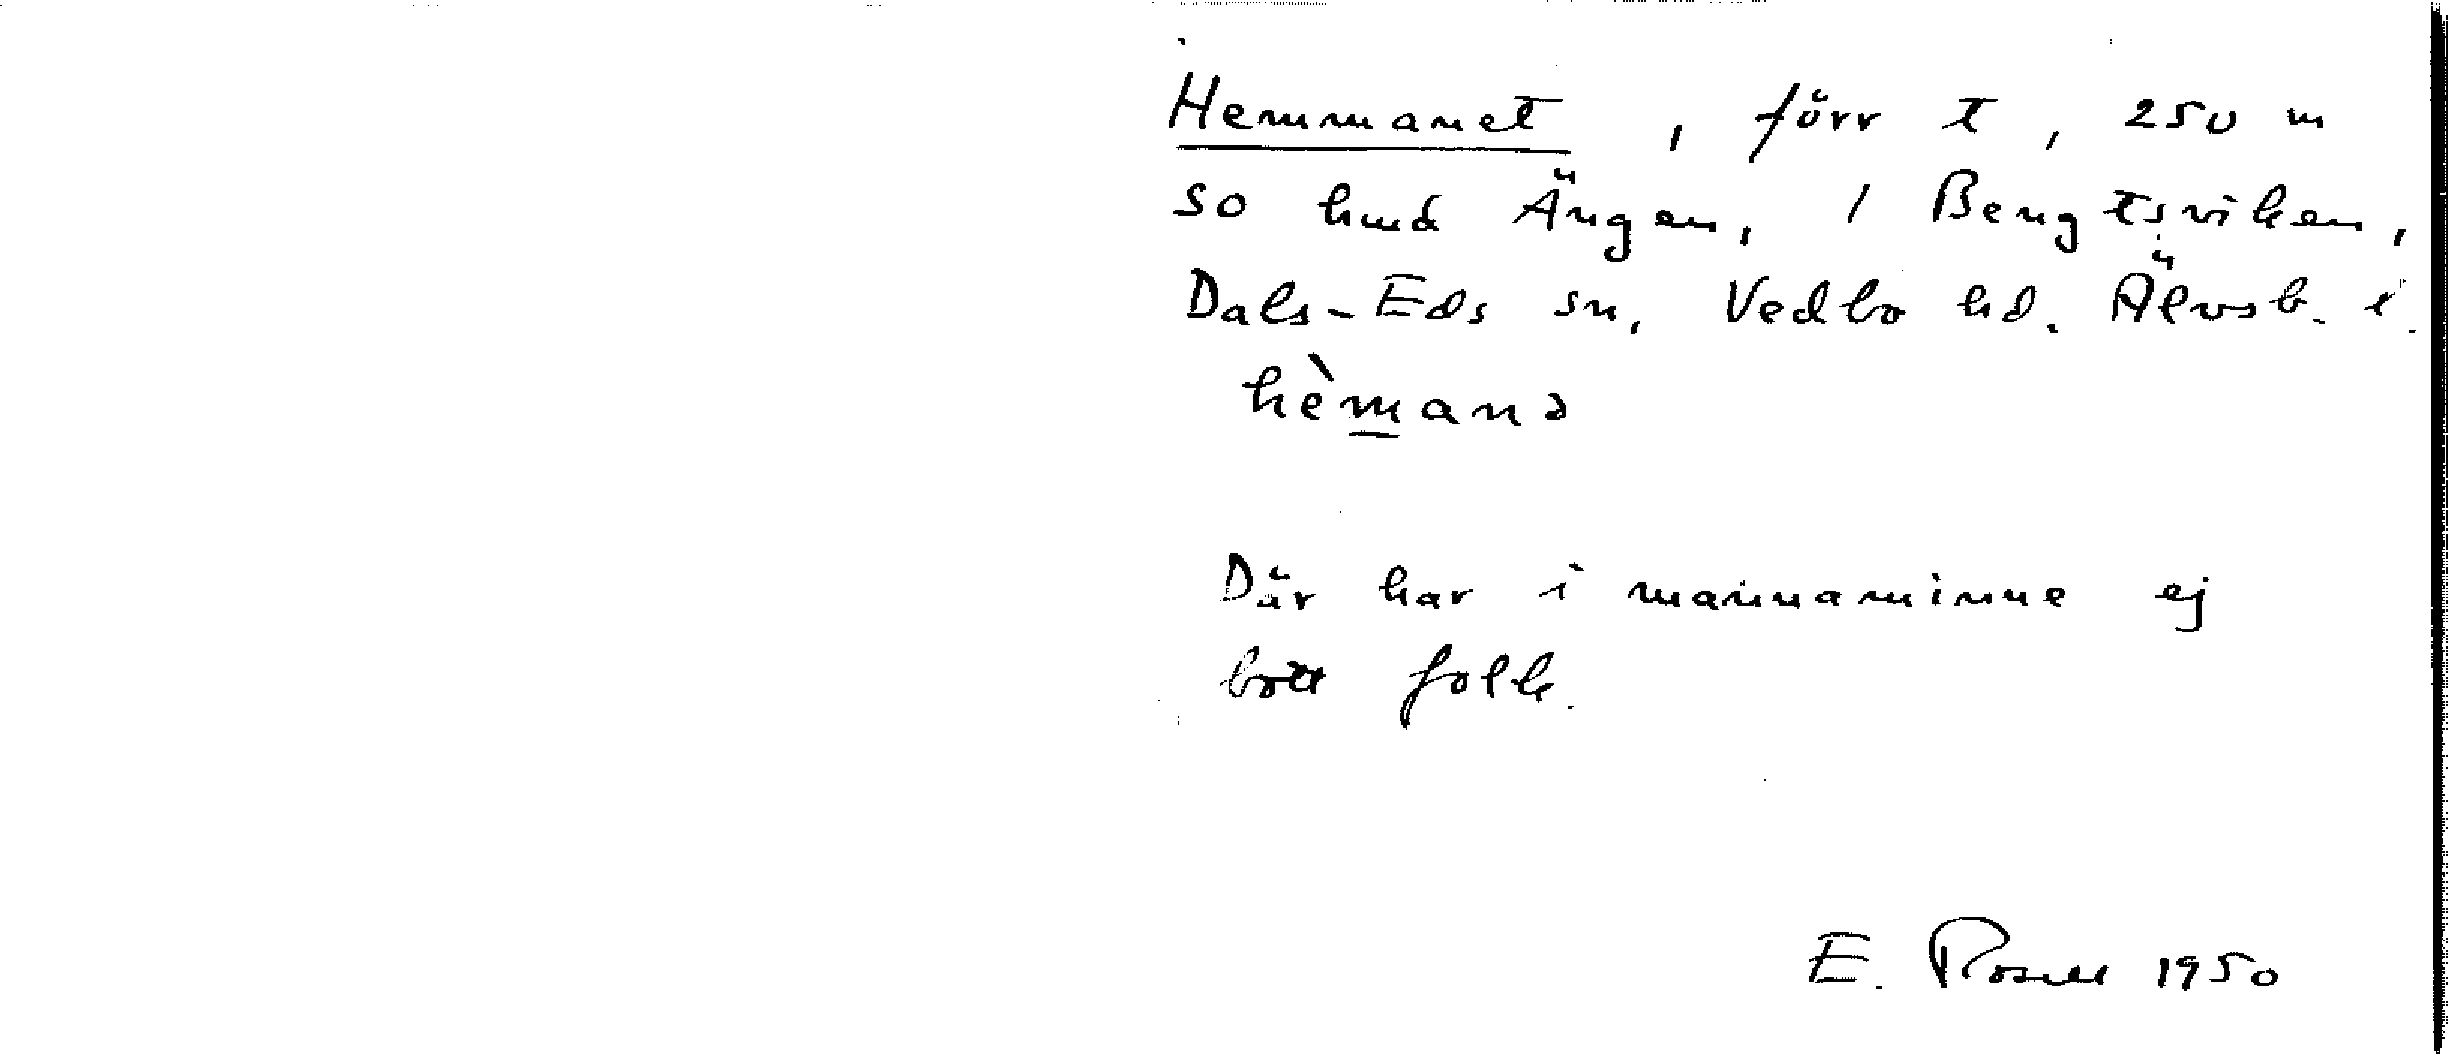 Hemmanet, förr t, 250 m
so hmd Ängen, 1 Bengtsviken,
Dals-Eds sn, Vedbo hd. Älvsb. l.
hèmanə
Där har i mannaminne ej
bott folk.
E. Rosell 1950